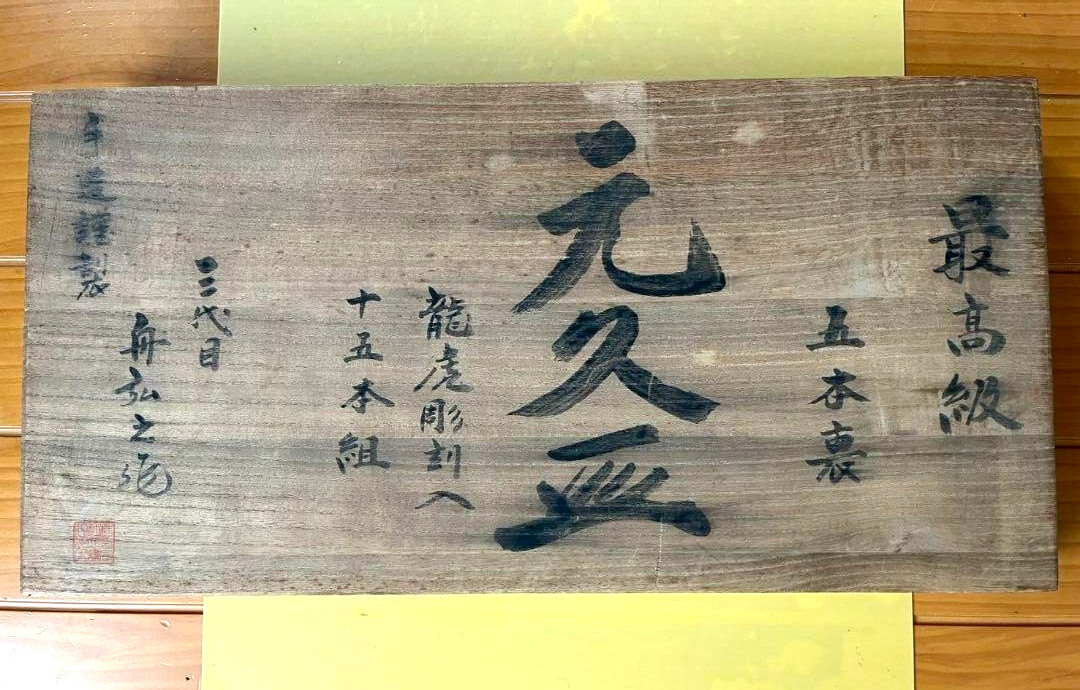 最高級
五本裏
元久亟
龍虎彫刻入
十五本組
三代目
舟弘之
謹製